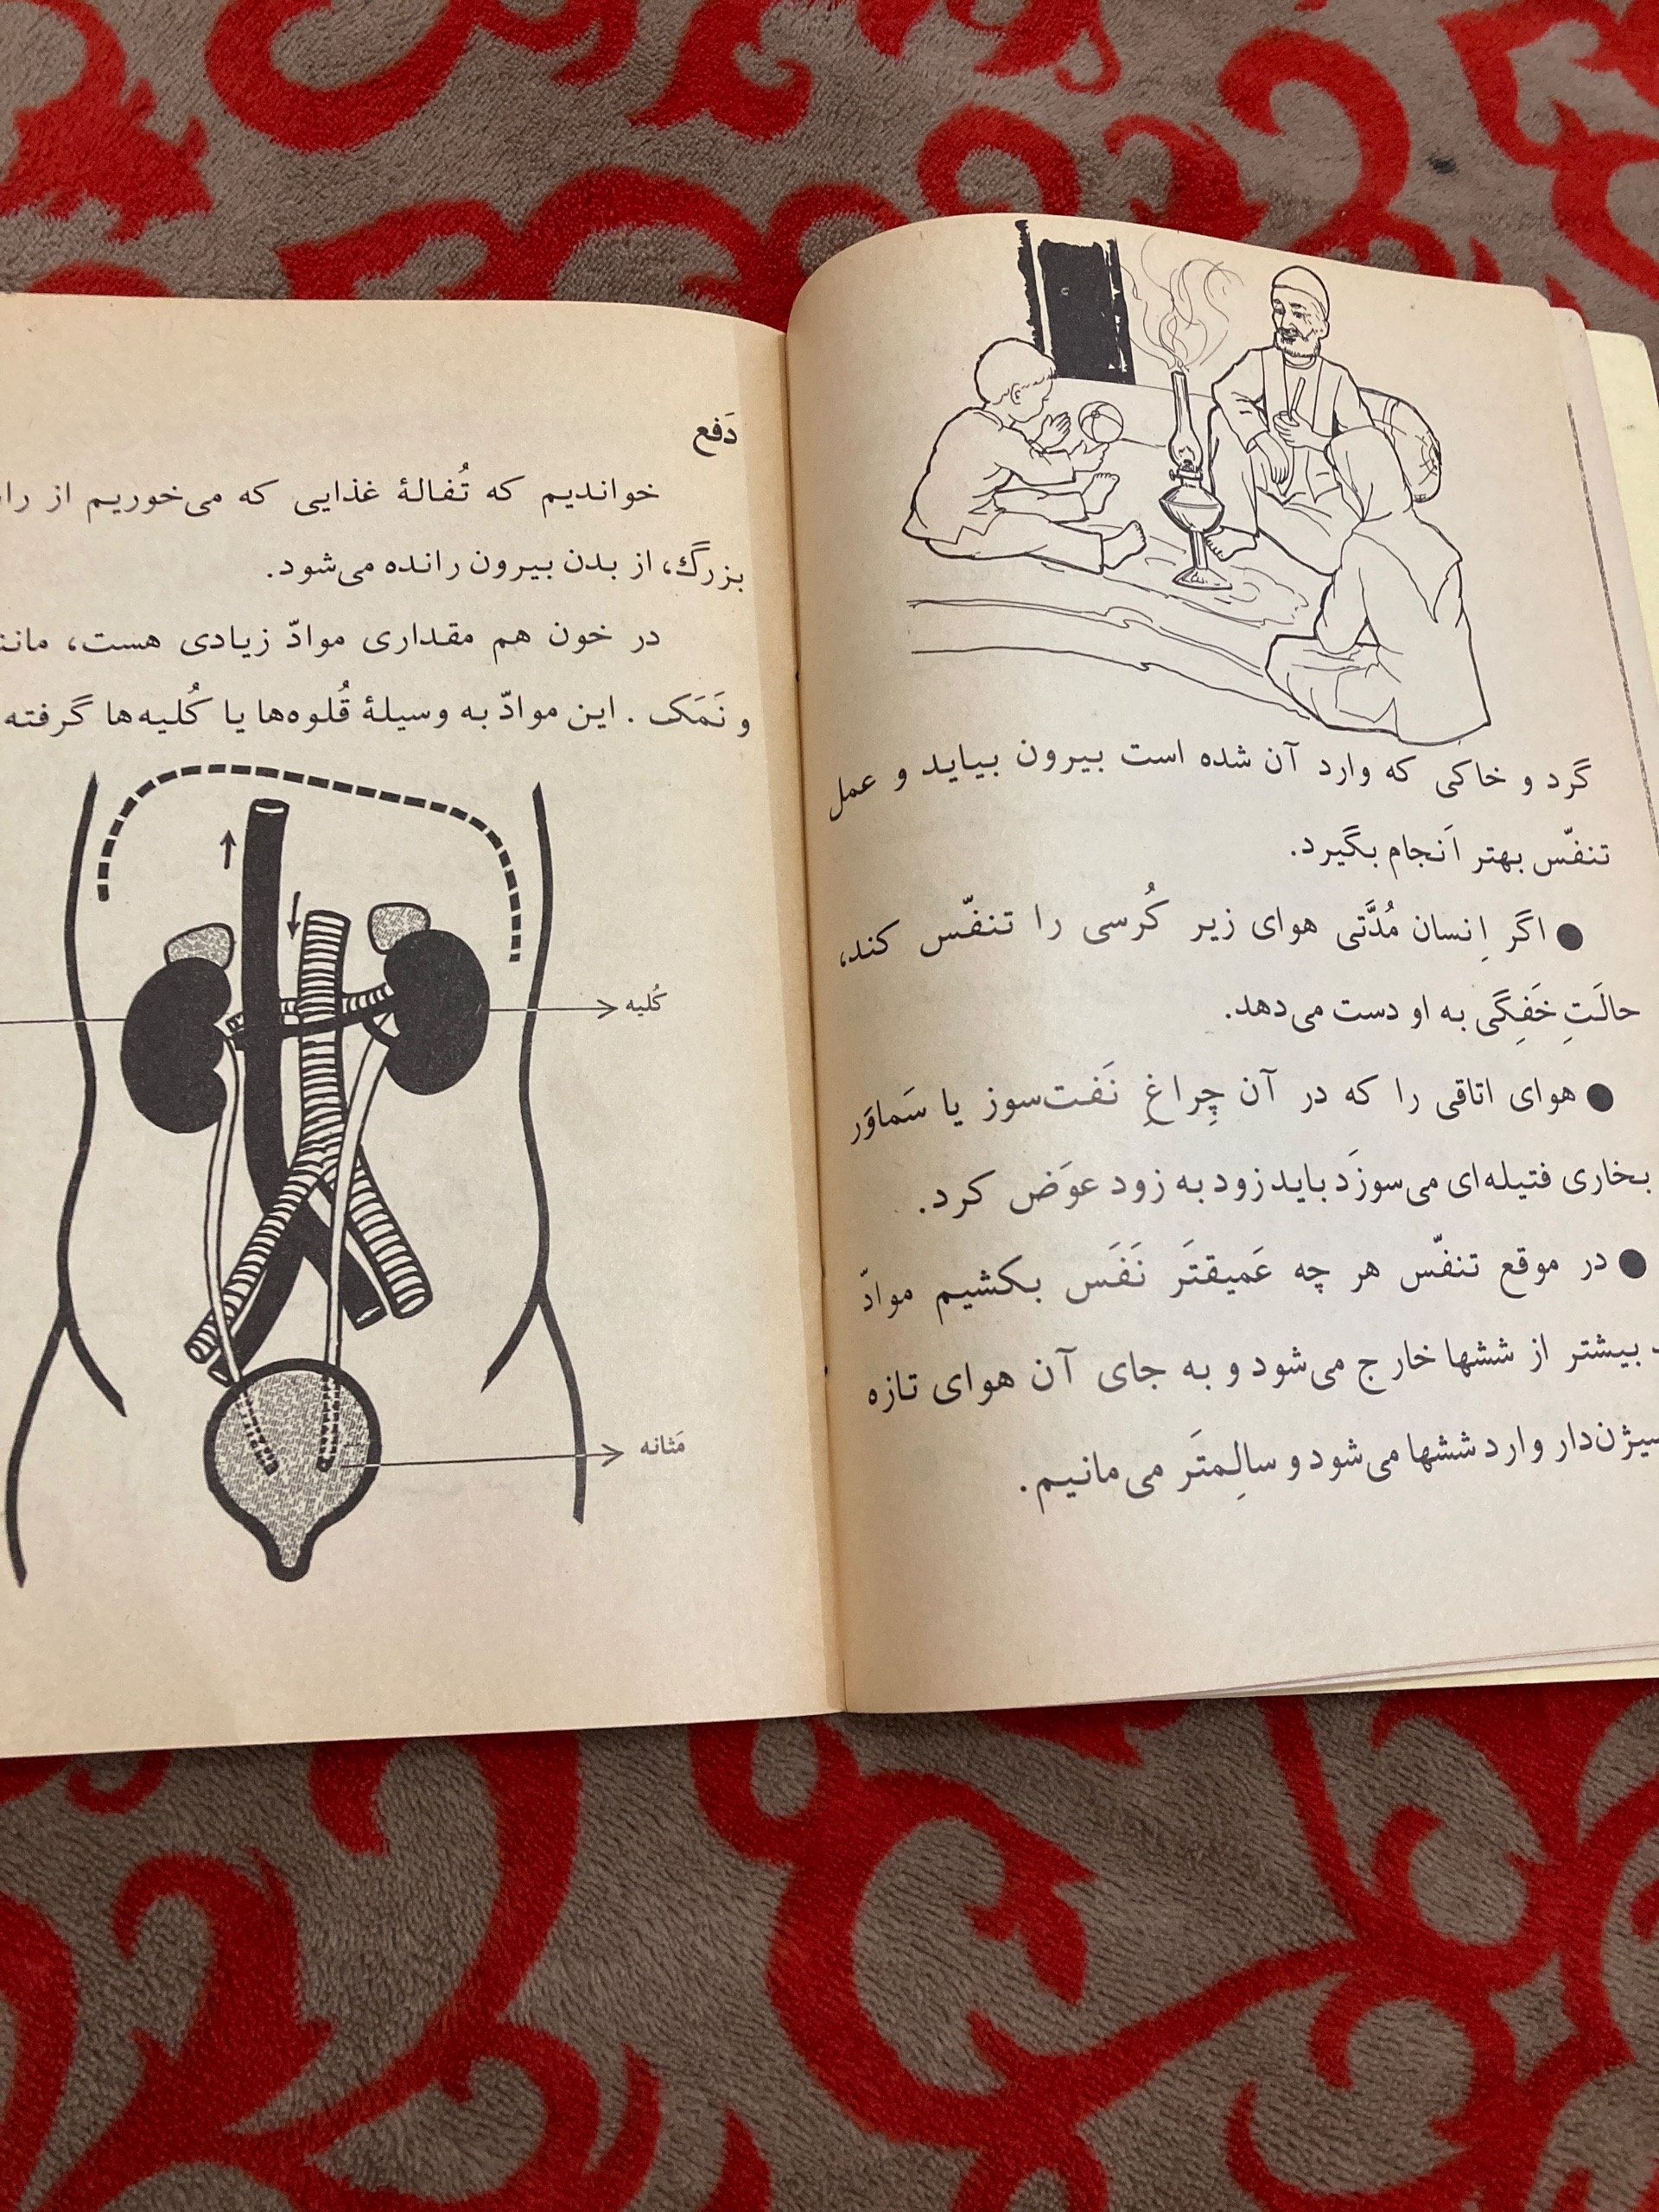 گرد و خاکی که وارد آن شده است بیرون بیاید و عمل
تنفّس بهتر اَنجام بگیرد.
● اگر اِنسان مُدَّتی هوای زیر کُرسی را تنفّس کند،
حالَتِ خَفِگی به او دست می‌دهد.
● هوای اتاقی را که در آن چِراغِ نَفت‌سوز یا سَماوَر
بخاری فتیله‌ای می‌سوزَد باید زود به زود عوَض کرد.
● در موقع تنفّس هر چه عَمیقتَر نَفَس بکشیم موادّ
بیشتر از ششها خارج می‌شود و به جای آن هوای تازه
دار وارد ششها می‌شود و سالِمتَر می‌مانیم.
دَفع
خواندیم که تُفالهٔ غذایی که می‌خوریم از
بزرگ، از بدن بیرون رانده می‌شود.
در خون هم مقداری موادّ زیادی هست،
و نَمَک. این موادّ به وسیلهٔ قُلوه‌ها یا کُلیه‌ها گرفته
کُلیه
مَثانه